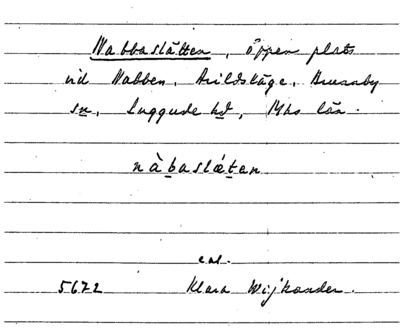 Nabbaslätten, öppen plats
vid Nabben, Arildsläge, Brunnby
sn, Luggude hd, Mhs län.
nàbaslǽten
enl.
5672 Klara Wijkander.